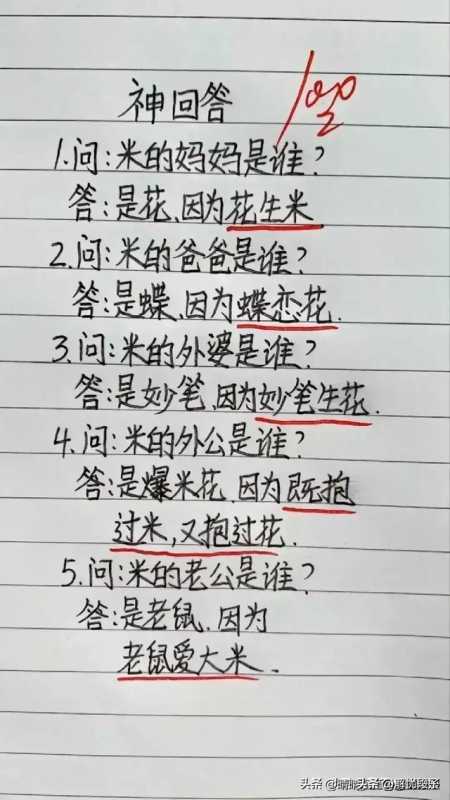 神回答
100
1.问:米的妈妈是谁?
答:是花、因为花生米
2.问:米的爸爸是谁?
答:是蝶、因为蝶恋花.
3.问:米的外婆是谁?
答:是妙笔、因为妙笔生花.
4.问:米的外公是谁?
答:是爆米花、因为既抱
过米,又抱过花.
5.问:米的老公是谁?
答:是老鼠、因为
老鼠爱大米.
头条